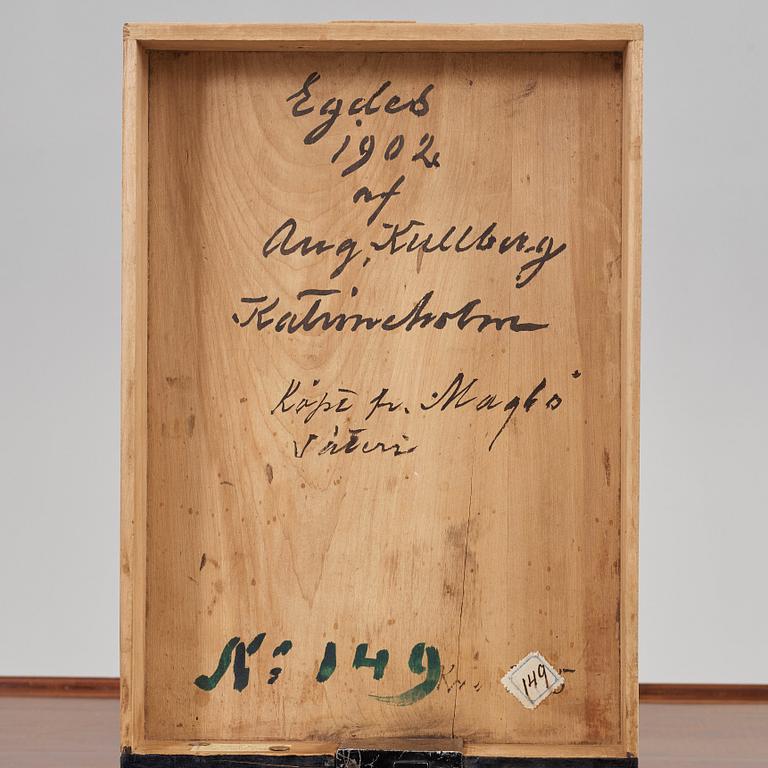 Egdes
1902
af
Aug. Kullberg
Katrineholm
Köpt fr. Maglö
Säteri
№: 149
149